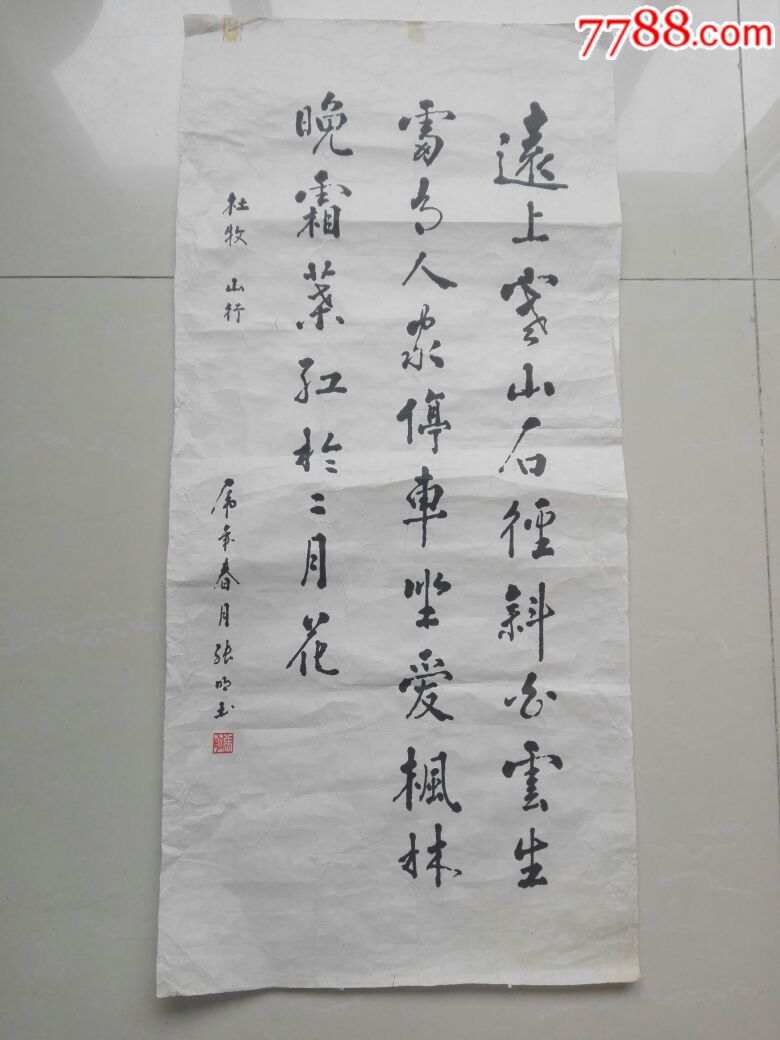 7788.com
遠上寒山石徑斜白雲生
處有人家停車坐愛楓林
晚霜葉紅於二月花
杜牧 山行
虎年春月張明玉